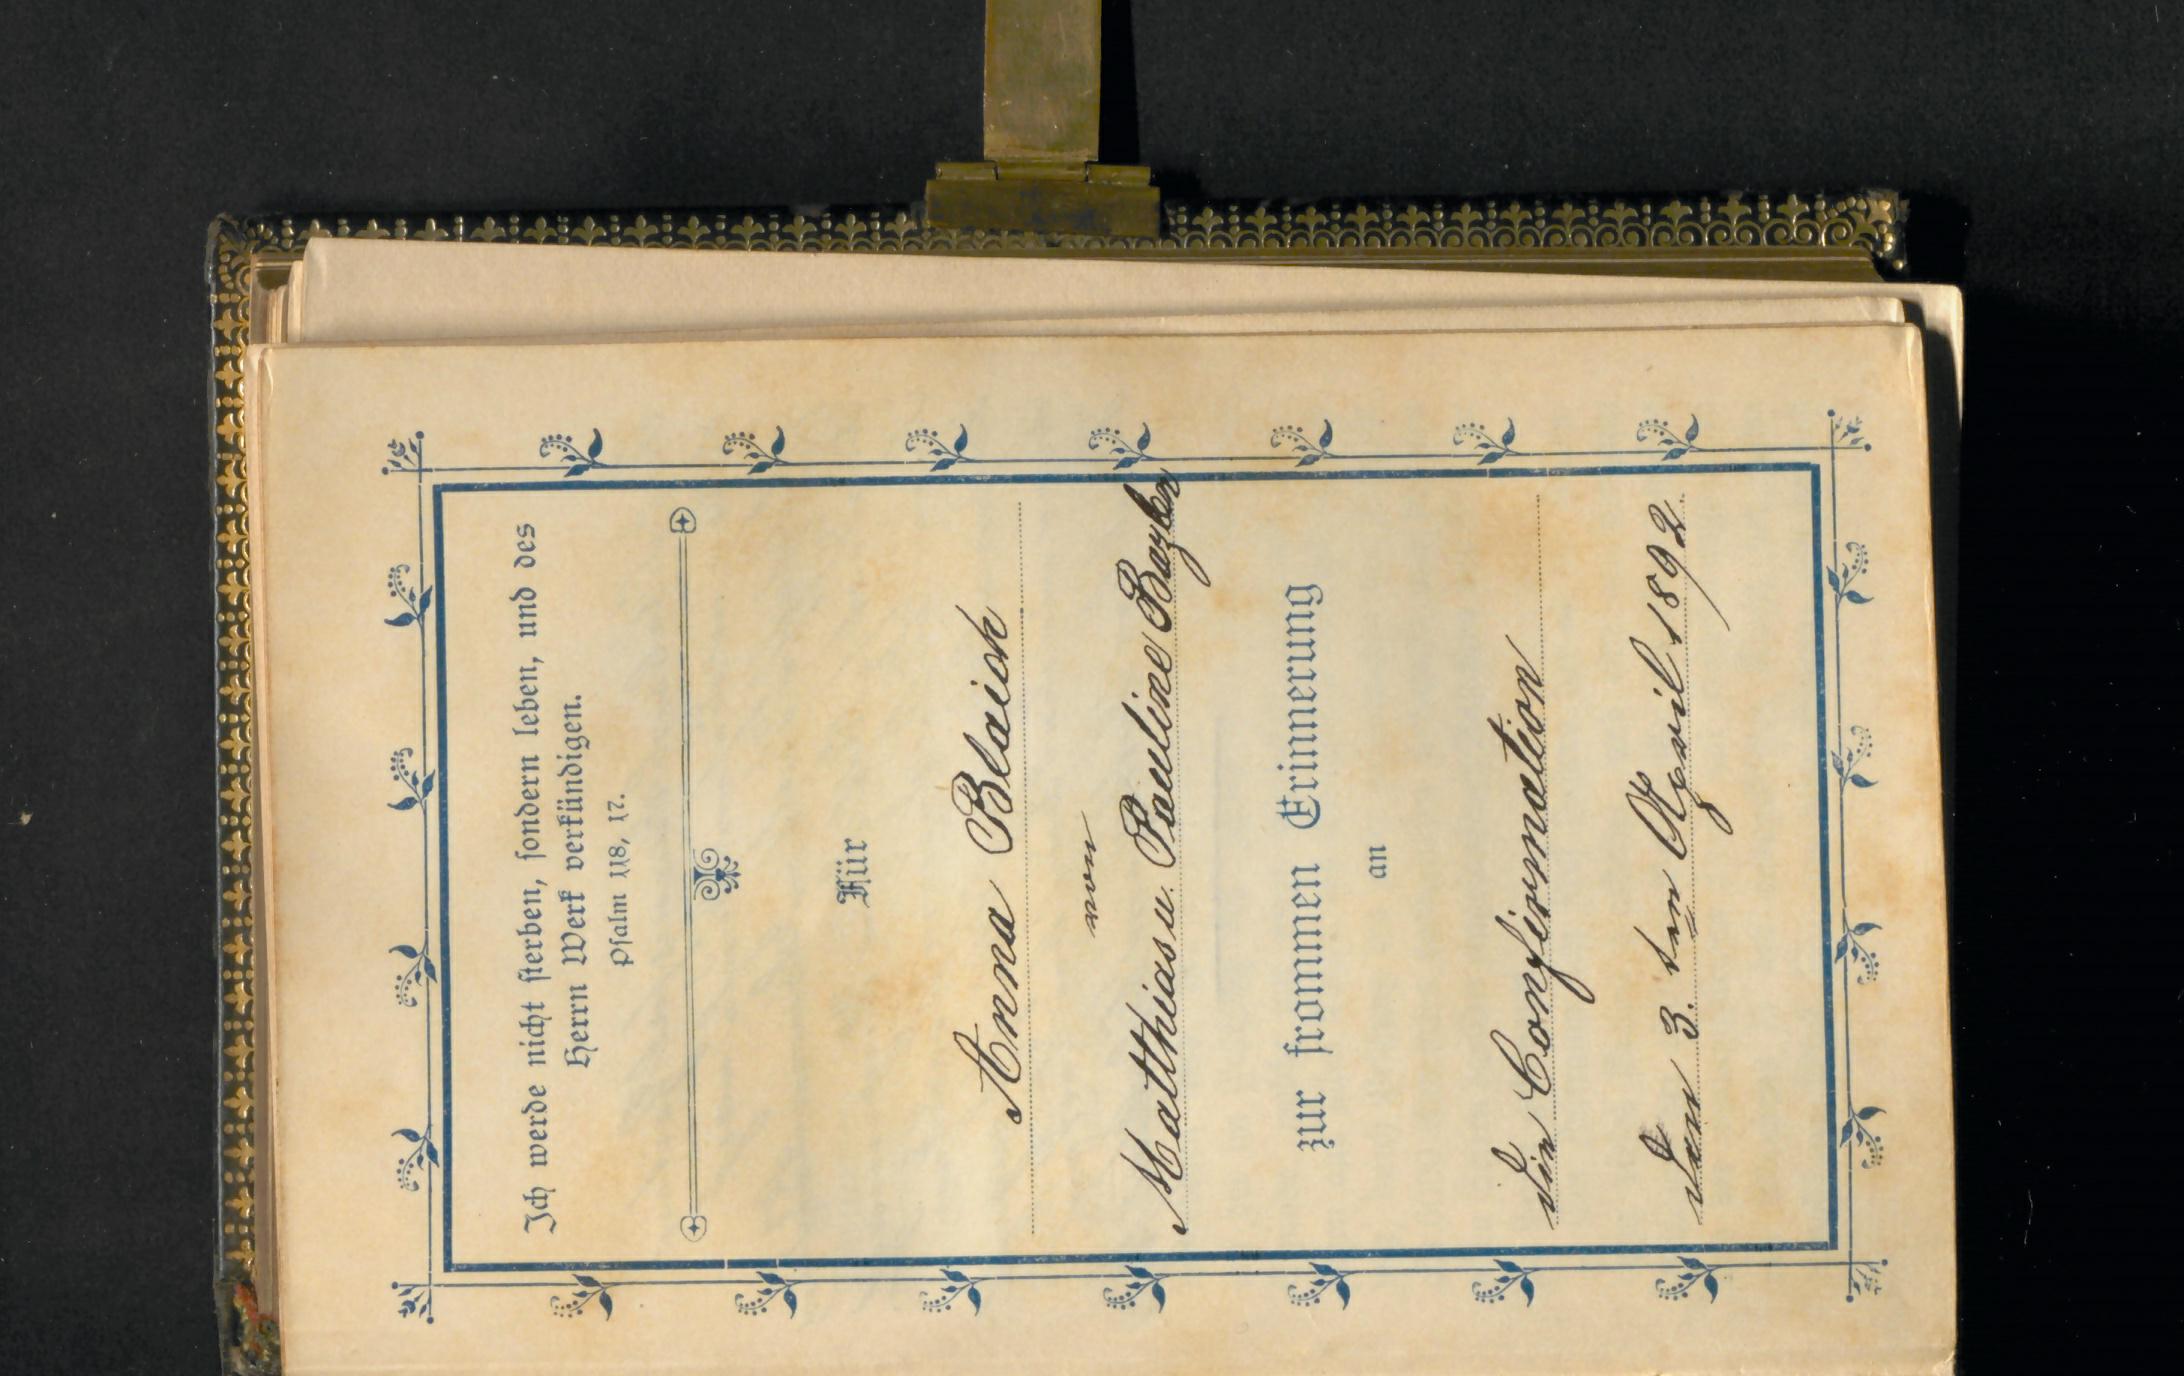 Ich werde nicht sterben, sondern leben, und des
Herrn Werk verkündigen.
Psalm 118, 17.
Für
Anna Blaich
von
Matthias u. Pauline
zur frommen Erinnerung
an
die Confirmation
den 3. ten April 1892